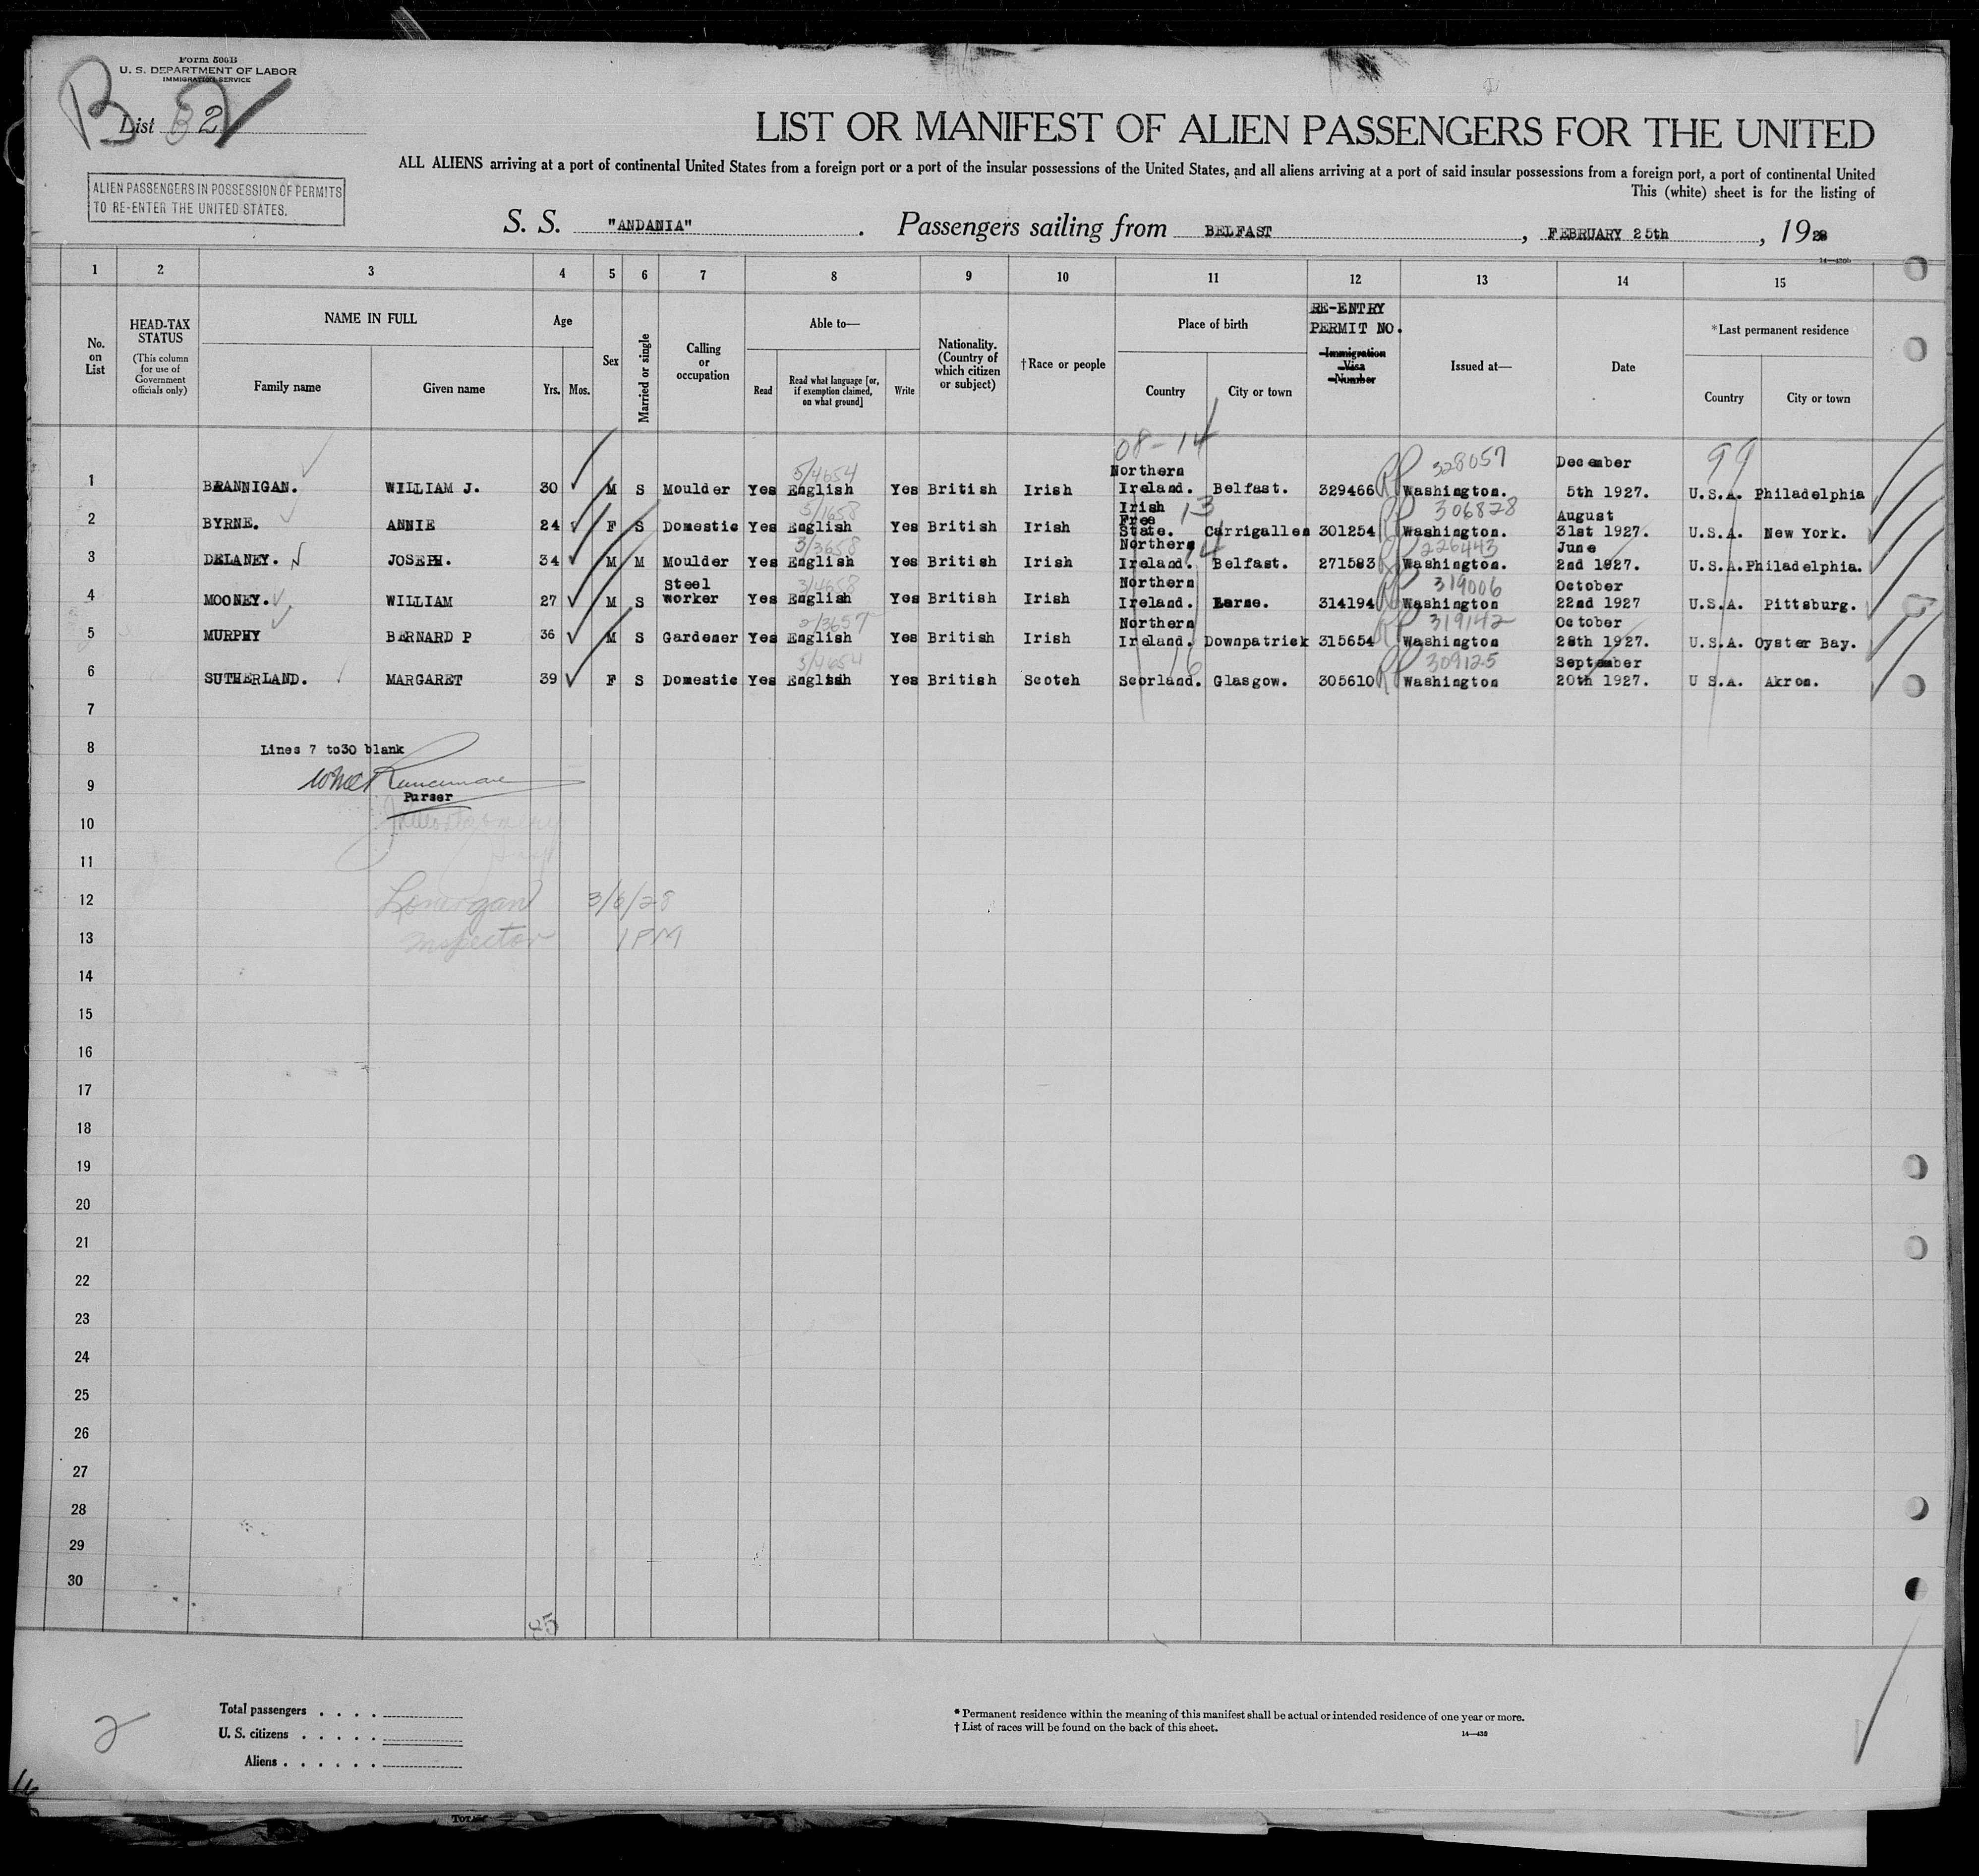 Form 500B
U. S. DEPARTMENT OF LABOR
IMMIGRATION SERVICE
B List 2
ALIEN PASSENGERS IN POSSESSION OF PERMITS
TO RE-ENTER THE UNITED STATES.
LIST OR MANIFEST OF ALIEN PASSENGERS FOR THE UNITED
ALL ALIENS arriving at a port of continental United States from a foreign port or a port of the insular possessions of the United States, and all aliens arriving at a port of said insular possessions from a foreign port, a port of continental United
This (white) sheet is for the listing of
S. S. "ANDANIA" . Passengers sailing from BELFAST , FEBRUARY 25th , 1928
1 2 3 4 5 6 7 8 9 10 11 12 13 14 15
No. on List
HEAD-TAX STATUS
(This column for use of Government officials only)
NAME IN FULL
Family name Given name
Age
Yrs. Mos.
Sex
Married or single
Calling or occupation
Able to—
Read
Read what language [or, if exemption claimed, on what ground]
Write
Nationality. (Country of which citizen or subject)
†Race or people
Place of birth
Country City or town
RE-ENTRY
PERMIT NO.
Immigration Visa Number
Issued at—
Date
*Last permanent residence
Country City or town
08-14 99
5/4654 328057
1 BRANNIGAN. WILLIAM J. 30 M S Moulder Yes English Yes British Irish Northern Ireland. Belfast. 329466 RP Washington. December 5th 1927. U.S.A. Philadelphia
3/1658 13 306828
2 BYRNE. ANNIE 24 F S Domestic Yes English Yes British Irish Irish Free State. Carrigallen 301254 RP Washington. August 31st 1927. U.S.A. New York.
3/3658 14 226443
3 DELANEY. JOSEPH. 34 M M Moulder Yes English Yes British Irish Northern Ireland. Belfast. 271583 RP Washington. June 2nd 1927. U.S.A. Philadelphia.
3/4658 319006
4 MOONEY. WILLIAM 27 M S Steel worker Yes English Yes British Irish Northern Ireland. Larne. 314194 RP Washington October 22nd 1927 U.S.A. Pittsburg.
2/3657 319142
5 MURPHY BERNARD P 36 M S Gardener Yes English Yes British Irish Northern Ireland. Downpatrick 315654 RP Washington October 28th 1927. U.S.A. Oyster Bay.
3/4654 16 309125
6 SUTHERLAND. MARGARET 39 F S Domestic Yes English Yes British Scotch Scorland. Glasgow. 305610 RP Washington September 20th 1927. U S.A. Akron.
7
8 Lines 7 to30 blank
9
Purser
10
11
12 Lonergan 3/6/28
13 Inspector 1 PM
14
15
16
17
18
19
20
21
22
23
24
25
26
27
28
29
30
85
2
Total passengers . . . .
U. S. citizens . . . . .
Aliens . . . . . .
* Permanent residence within the meaning of this manifest shall be actual or intended residence of one year or more.
† List of races will be found on the back of this sheet.
14—438